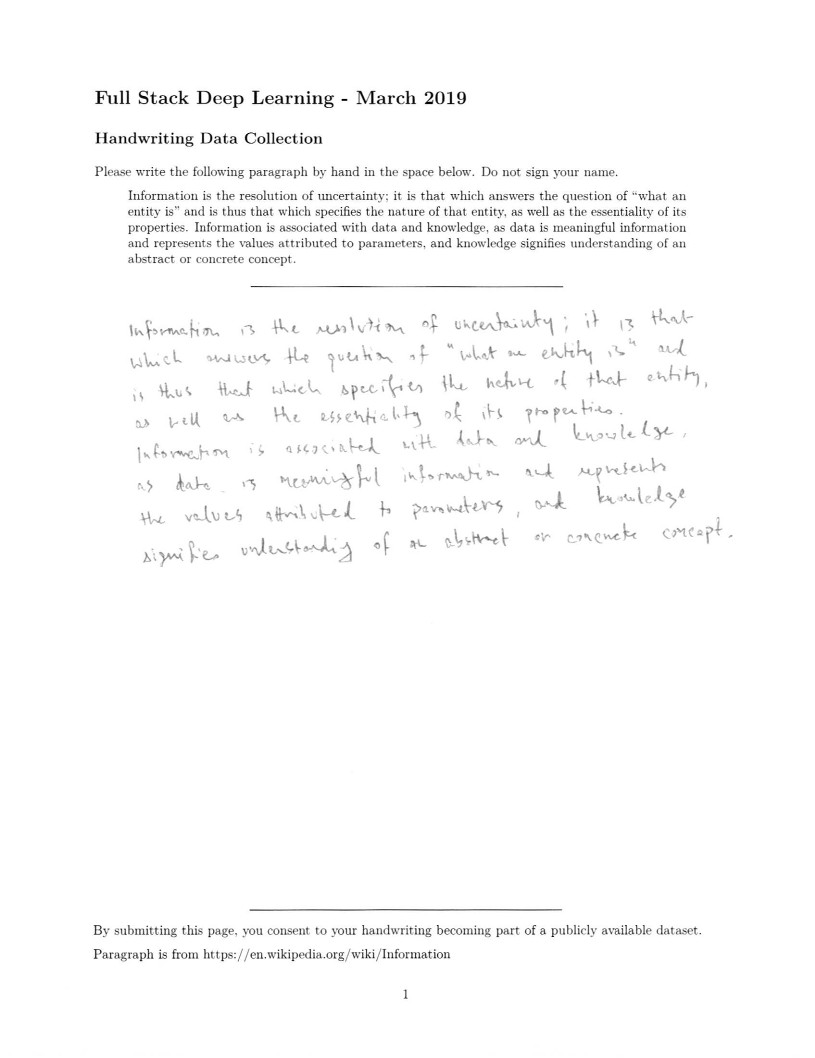 Full Stack Deep Learning - March 2019
Handwriting Data Collection
Please write the following paragraph by hand in the space below. Do not sign your name.
Information is the resolution of uncertainty; it is that which answers the question of “what an
entity is” and is thus that which specifies the nature of that entity, as well as the essentiality of its
properties. Information is associated with data and knowledge, as data is meaningful information
and represents the values attributed to parameters, and knowledge signifies understanding of an
abstract or concrete concept.
Information is the resolution of uncertainty; it is that
which answers the question of "what an entity is" and
is thus that which specifies the nature of that entity,
as well as the essentiality of its properties.
Information is associated with data and knowledge,
as data is meaningful information and represents
the values attributed to parameters, and knowledge
signifies understanding of an abstract or concrete concept.
By submitting this page, you consent to your handwriting becoming part of a publicly available dataset.
Paragraph is from https://en.wikipedia.org/wiki/Information
1